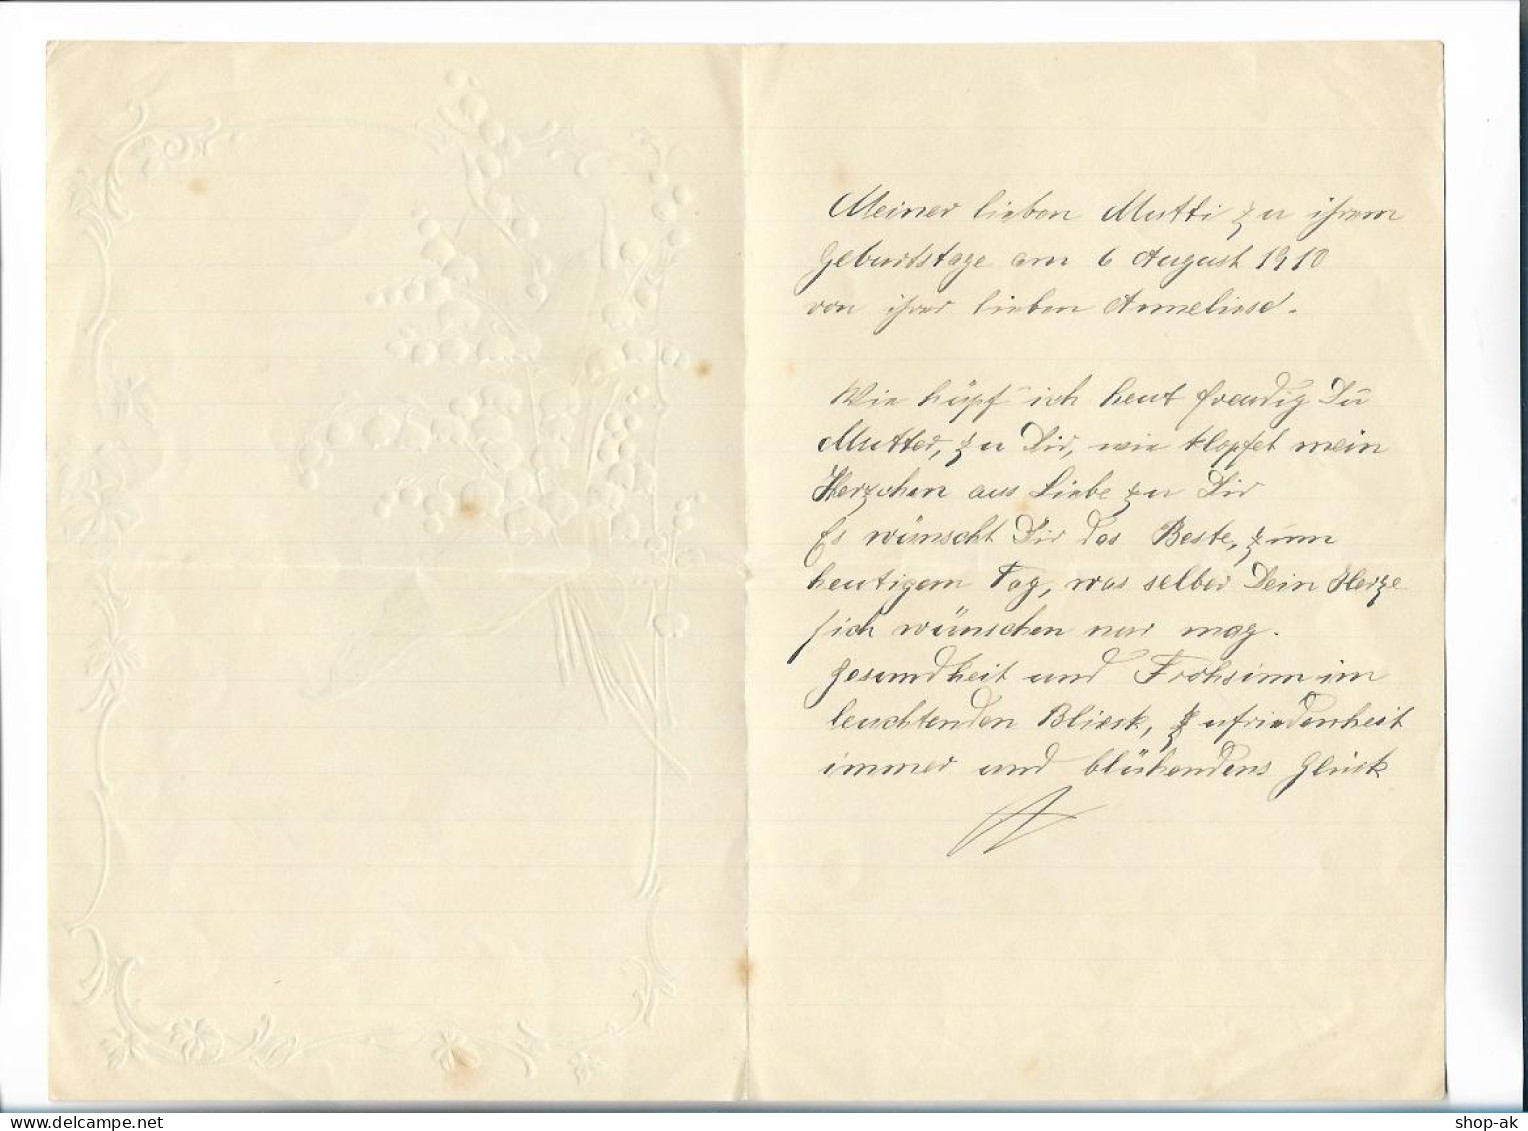 Meiner lieben Mutti zu ihrem
Geburtstage am 6 August 1910
von ihrer lieben Anneliese.
Wie hüpf ich heut freudig Du
Mutter, zu Dir, wie klopfet mein
Herzchen aus Liebe zu Dir
Es wünscht Dir das Beste, zum
heutigem Tag, was selber Dein Herze
sich wünschen nur mag.
Gesundheit und Frohsinn im
leuchtenden Blick, Zufriedenheit
immer und blühendens Glück
shop-ak